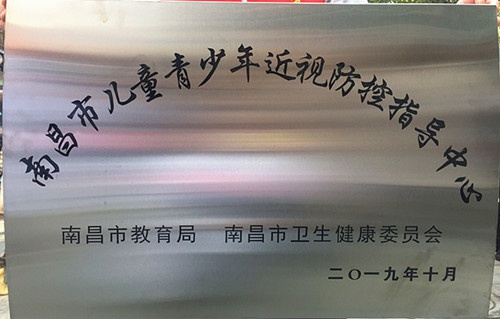 南昌市儿童青少年近视防控指导中心
南昌市教育局 南昌市卫生健康委员会
二〇一九年十月